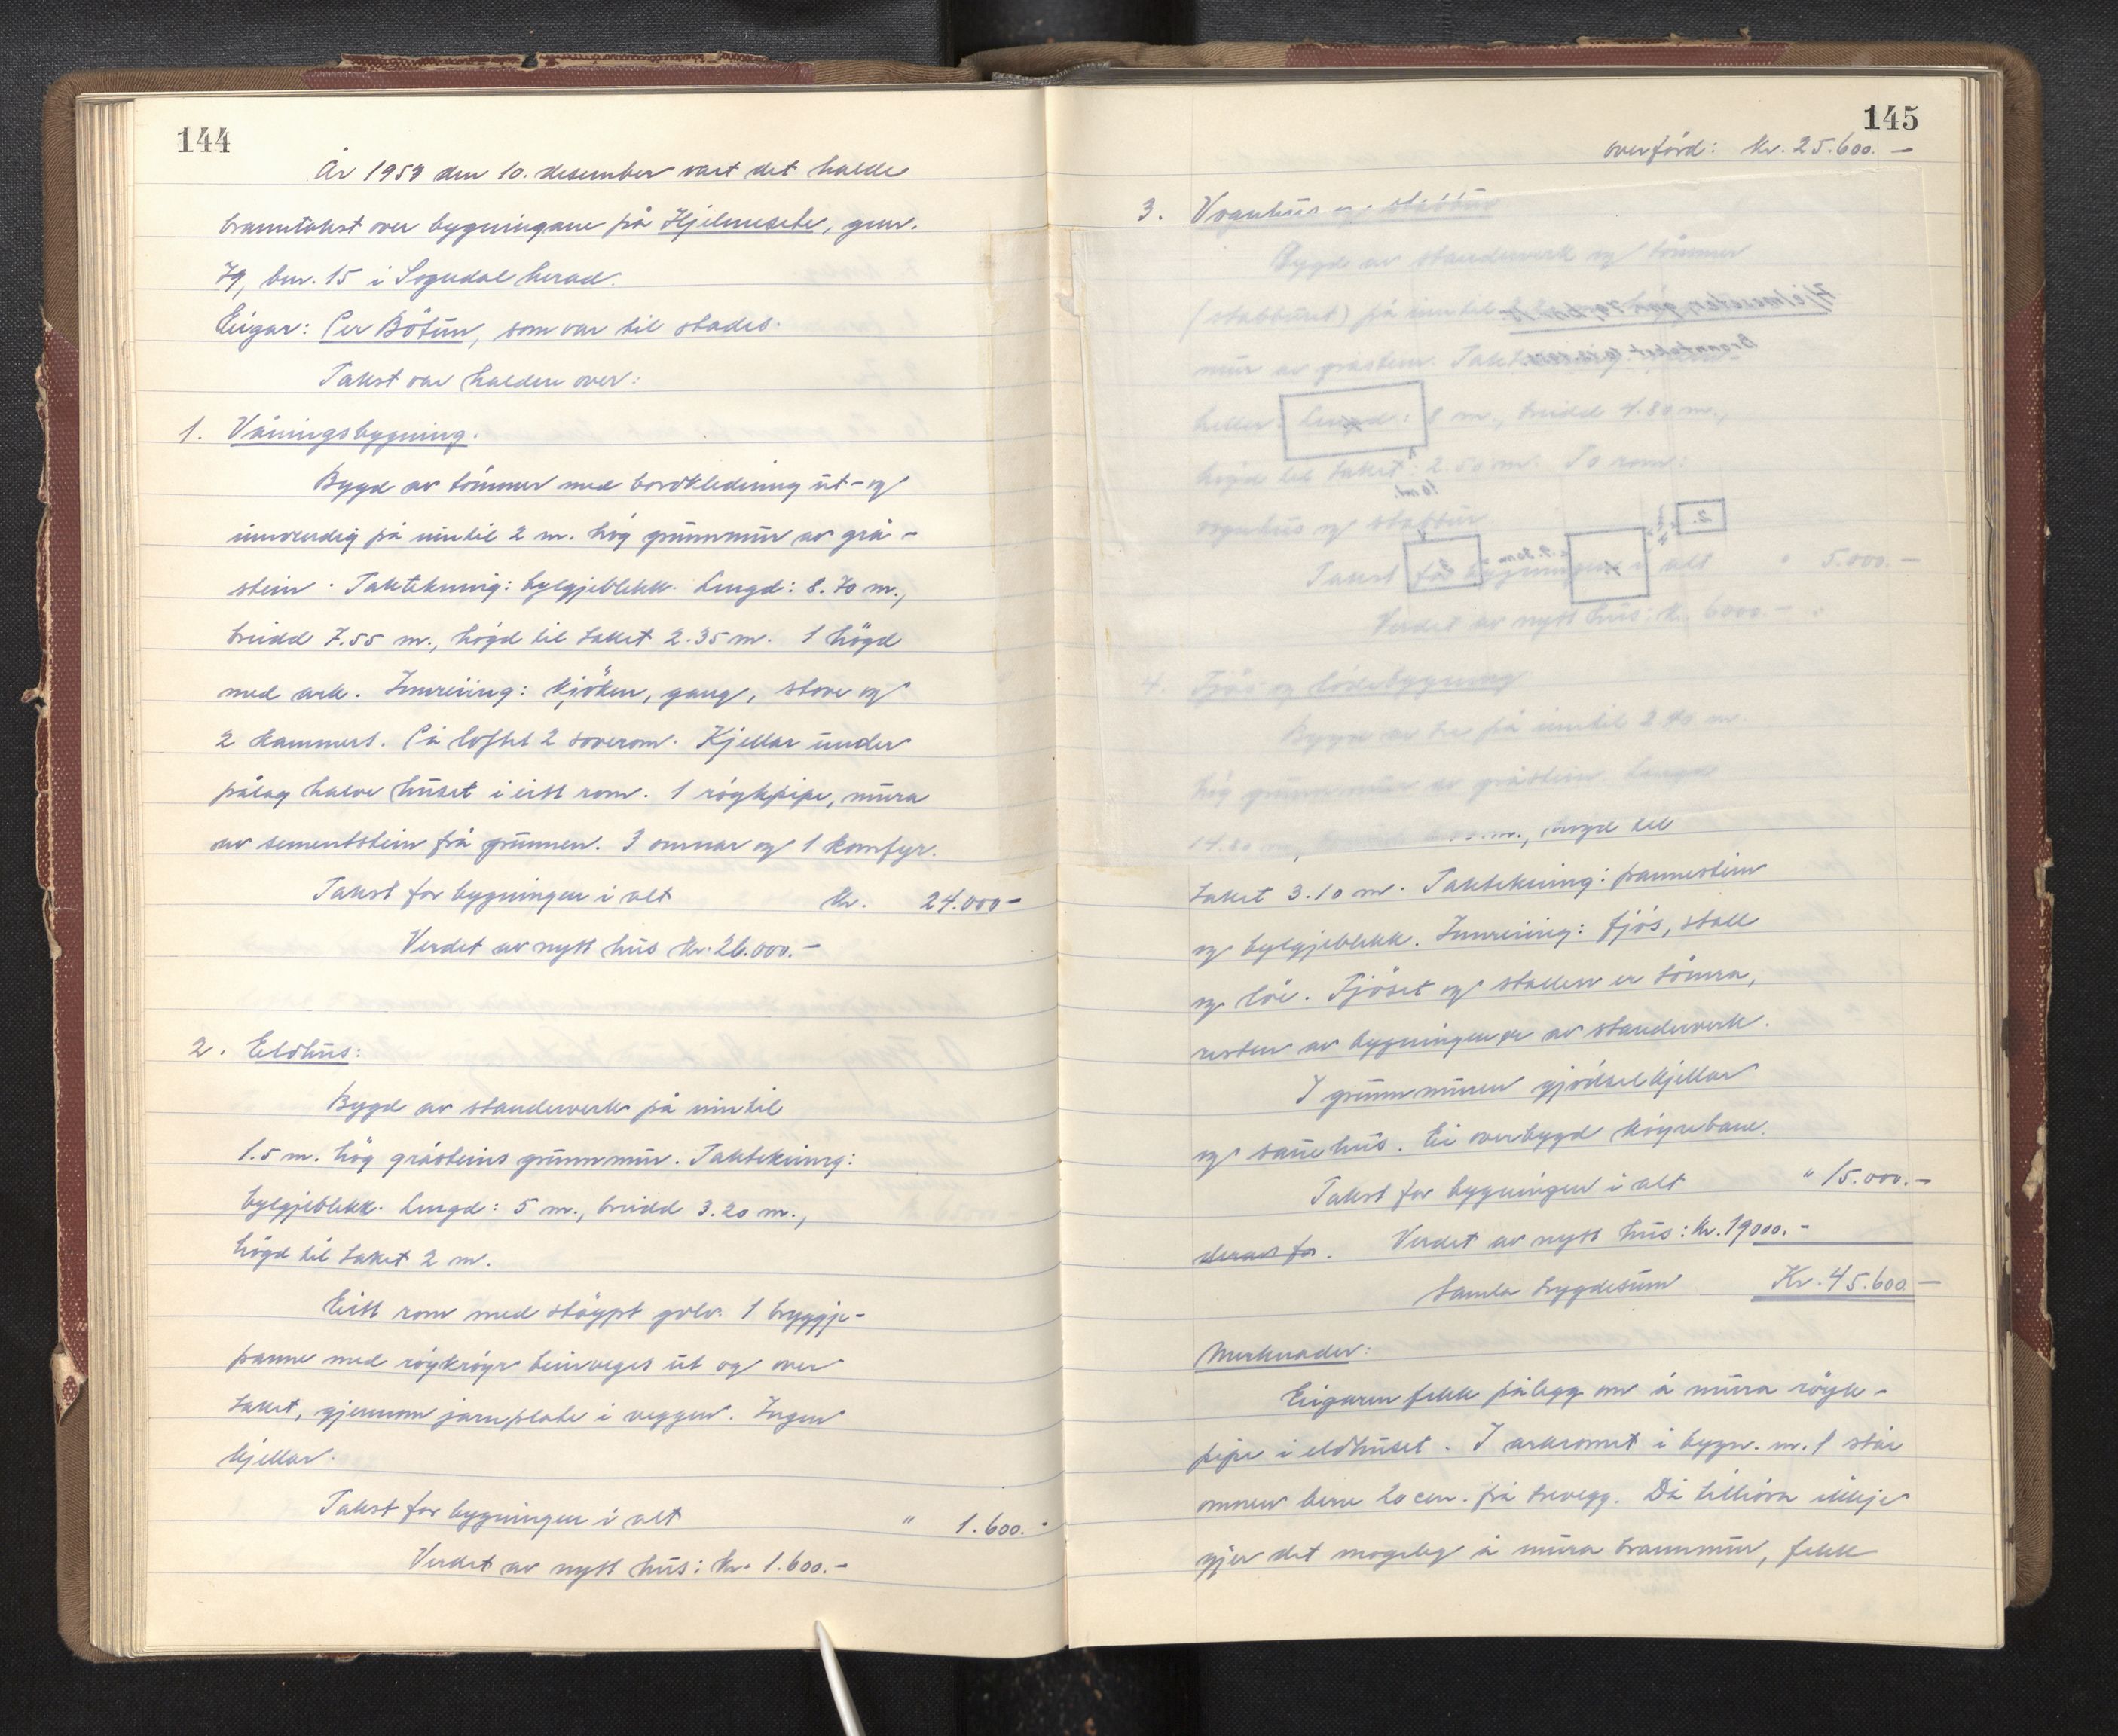 144
År 1953 den 10. desember vart det halde
branntakst over bygningane på Hjelmesete, gnr.
79, bnr. 15 i Sogndal herad.
Eigar: Per Bötun, som var til stades.
Takst var halden over:
1. Våningsbygning.
Bygd av tömmer med bordkledning ut- og
innvendig på inntil 2 m. hög grunnmur av grå-
stein. Taktekning: bylgjeblekk. Lengd: 8.70 m.,
breidd 7.55 m., högd til taket 2.35 m. 1 högd
med ark. Innreiing: kjöken, gang, stove og
2 kammers. På loftet 2 soverom. Kjellar under
pålag halve huset i eitt rom. 1 röykpipe, mura
av sementstein frå grunnen. 3 omnar og 1 komfyr.
Takst for bygningen i alt kr. 24.000-
Verdet av nytt hus kr. 26.000.-
2. Eldhus:
Bygd av standerverk på inntil
1.5 m. hög gråsteins grunnmur. Taktekning:
bylgjeblekk. Lengd: 5 m., breidd 3.20 m.,
högd til taket 2 m.
Eitt rom med stöypt golv. 1 bryggje-
panne med röykröyr beinveges ut og over
taket, gjennom jarnplate i veggen. Ingen
kjellar.
Takst for bygningen i alt " 1.600.-
Verdet av nytt hus: kr. 1.600.-
145
overförd: kr. 25.600.-
3. Vognhus og stabbur
Bygd av standerverk og tömmer
(stabburet) på inntil
mur av gråstein.
Hjelmesete, gnr. 79, bnr. 15
Branntakst 10.12.1953
heller. Lengd: 8 m., breidd 4.80 m.,
högd til taket: 2.50 m. To rom:
10 m.
vognhus og stabbur.
2.
Takst for bygningen i alt " 5.000.-
Verdet av nytt hus: kr. 6000.-
4. Fjös og lödebygning
Bygd av tre på inntil 2.70 m.
hög grunnmur av gråstein. Lengd
14.80 m., m., högd til
taket 3.10 m. Taktekning: pannestein
og bylgjeblekk. Innreiing: fjös, stall
og löe. Fjöset og stallen er tömra,
resten av bygningen er av standerverk.
I grunnmuren gjödselkjellar
og sauehus. Ei overbygd köyrebane.
Takst for bygningen i alt " 15.000.-
derav for. Verdet av nytt hus: kr. 19000.-
Samla trygdesum Kr. 45.600-
Merknader:
Eigaren fekk pålegg om å mura röyk-
pipe i eldhuset. I arkromet i bygn. nr. 1 står
omnen berre 20 cm. frå trevegg. Då tilhöva ikkje
gjer det mogeleg å mura brannmur, fekk